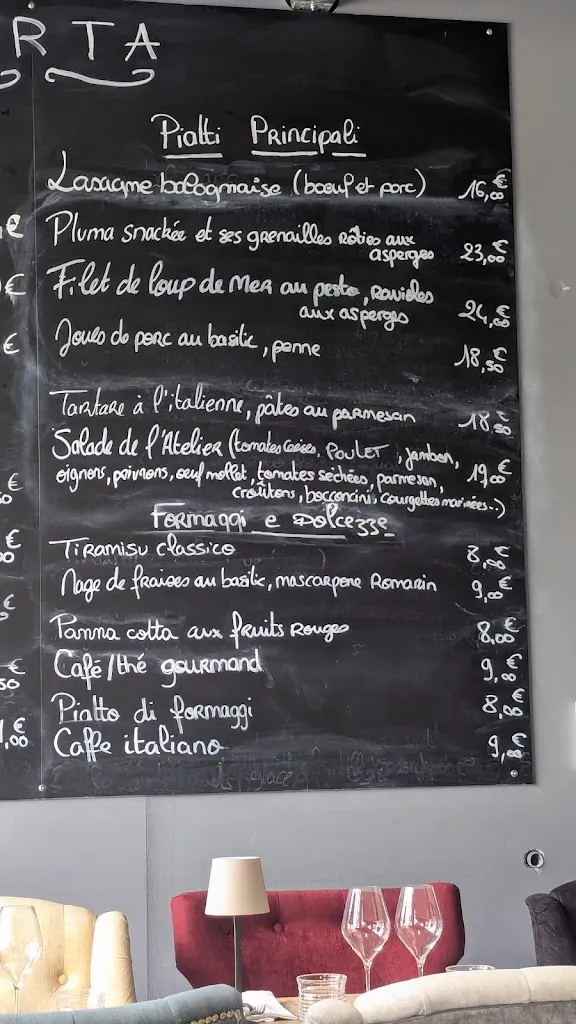 RTA
Piatti Principali
Lasagne bolognaise (bœuf et porc) 16,00€
Pluma snackée et ses grenailles rôties aux
asperges 23,00€
Filet de loup de Mer au pesto, ravioles
aux asperges 24,00€
Joues de porc au basilic, penne 18,50€
Tartare à l'italienne, pâtes au parmesan 18,50€
Salade de l'Atelier (tomates POULET, jambon,
oignons, poivrons, œuf mollet, tomates séchées, parmesan, 19,00€
croûtons, bocconcini, courgettes marinées..)
Formaggi e Dolcezze
Tiramisu classico 8,00€
Nage de fraises au basilic, mascarpone Romarin 9,00€
Panna cotta aux fruits Rouges 8,00€
Café/thé gourmand 9,00€
Piatto di formaggi 8,00€
Caffe italiano 9,00€